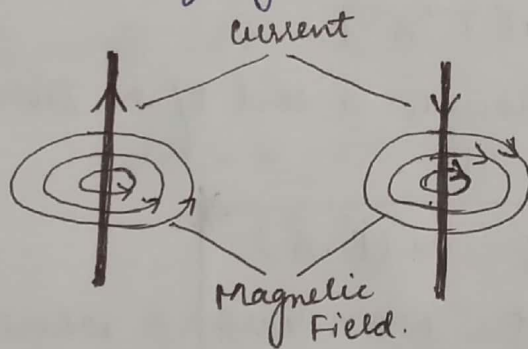 current
Magnetic
Field.